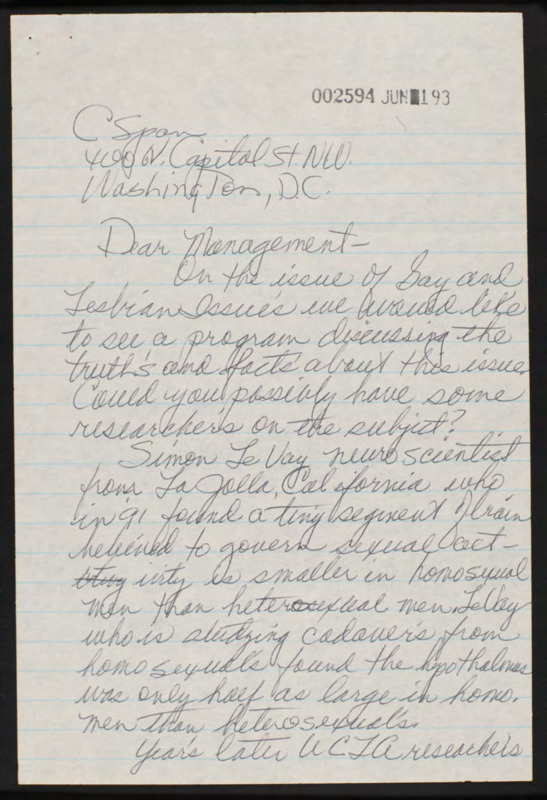 002594 JUN 1 93
C Span
400 N. Capital St. NW.
Washington, D.C.
Dear Management-
On the issue of Gay and
Lesbian Issue's we would like
to see a program discussing the
truth's and facts about this issue.
Could you possibly have some
researcher's on the subject?
Simon LeVay neuroscientist
from La Jolla, California who
in 91 found a tiny segment of brain
believed to govern sexual act-
ivity is smaller in homosexual
men than heterosexual men. LeVay
who is studying cadaver's from
homosexual's found the hypothalmus
was only half as large in homo.
men than heterosexual's.
Year's later UCLA reseachers